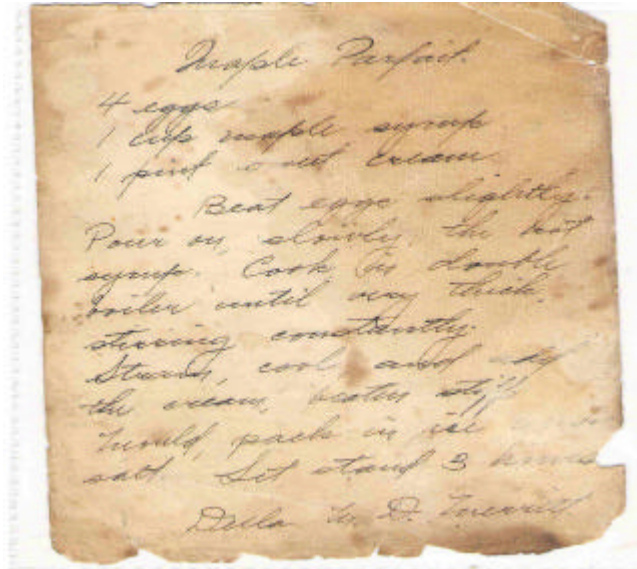 Maple Parfait.
4 eggs
1 cup maple syrup
1 pint sweet cream
Beat eggs slightly.
Pour on, slowly, the hot
syrup. Cook in double
boiler until very thick,
stirring constantly.
Strain, cool and add
the cream, beaten stiff.
Mould, pack in ice and
salt. Let stand 3 hours
Della M. D. Merrill